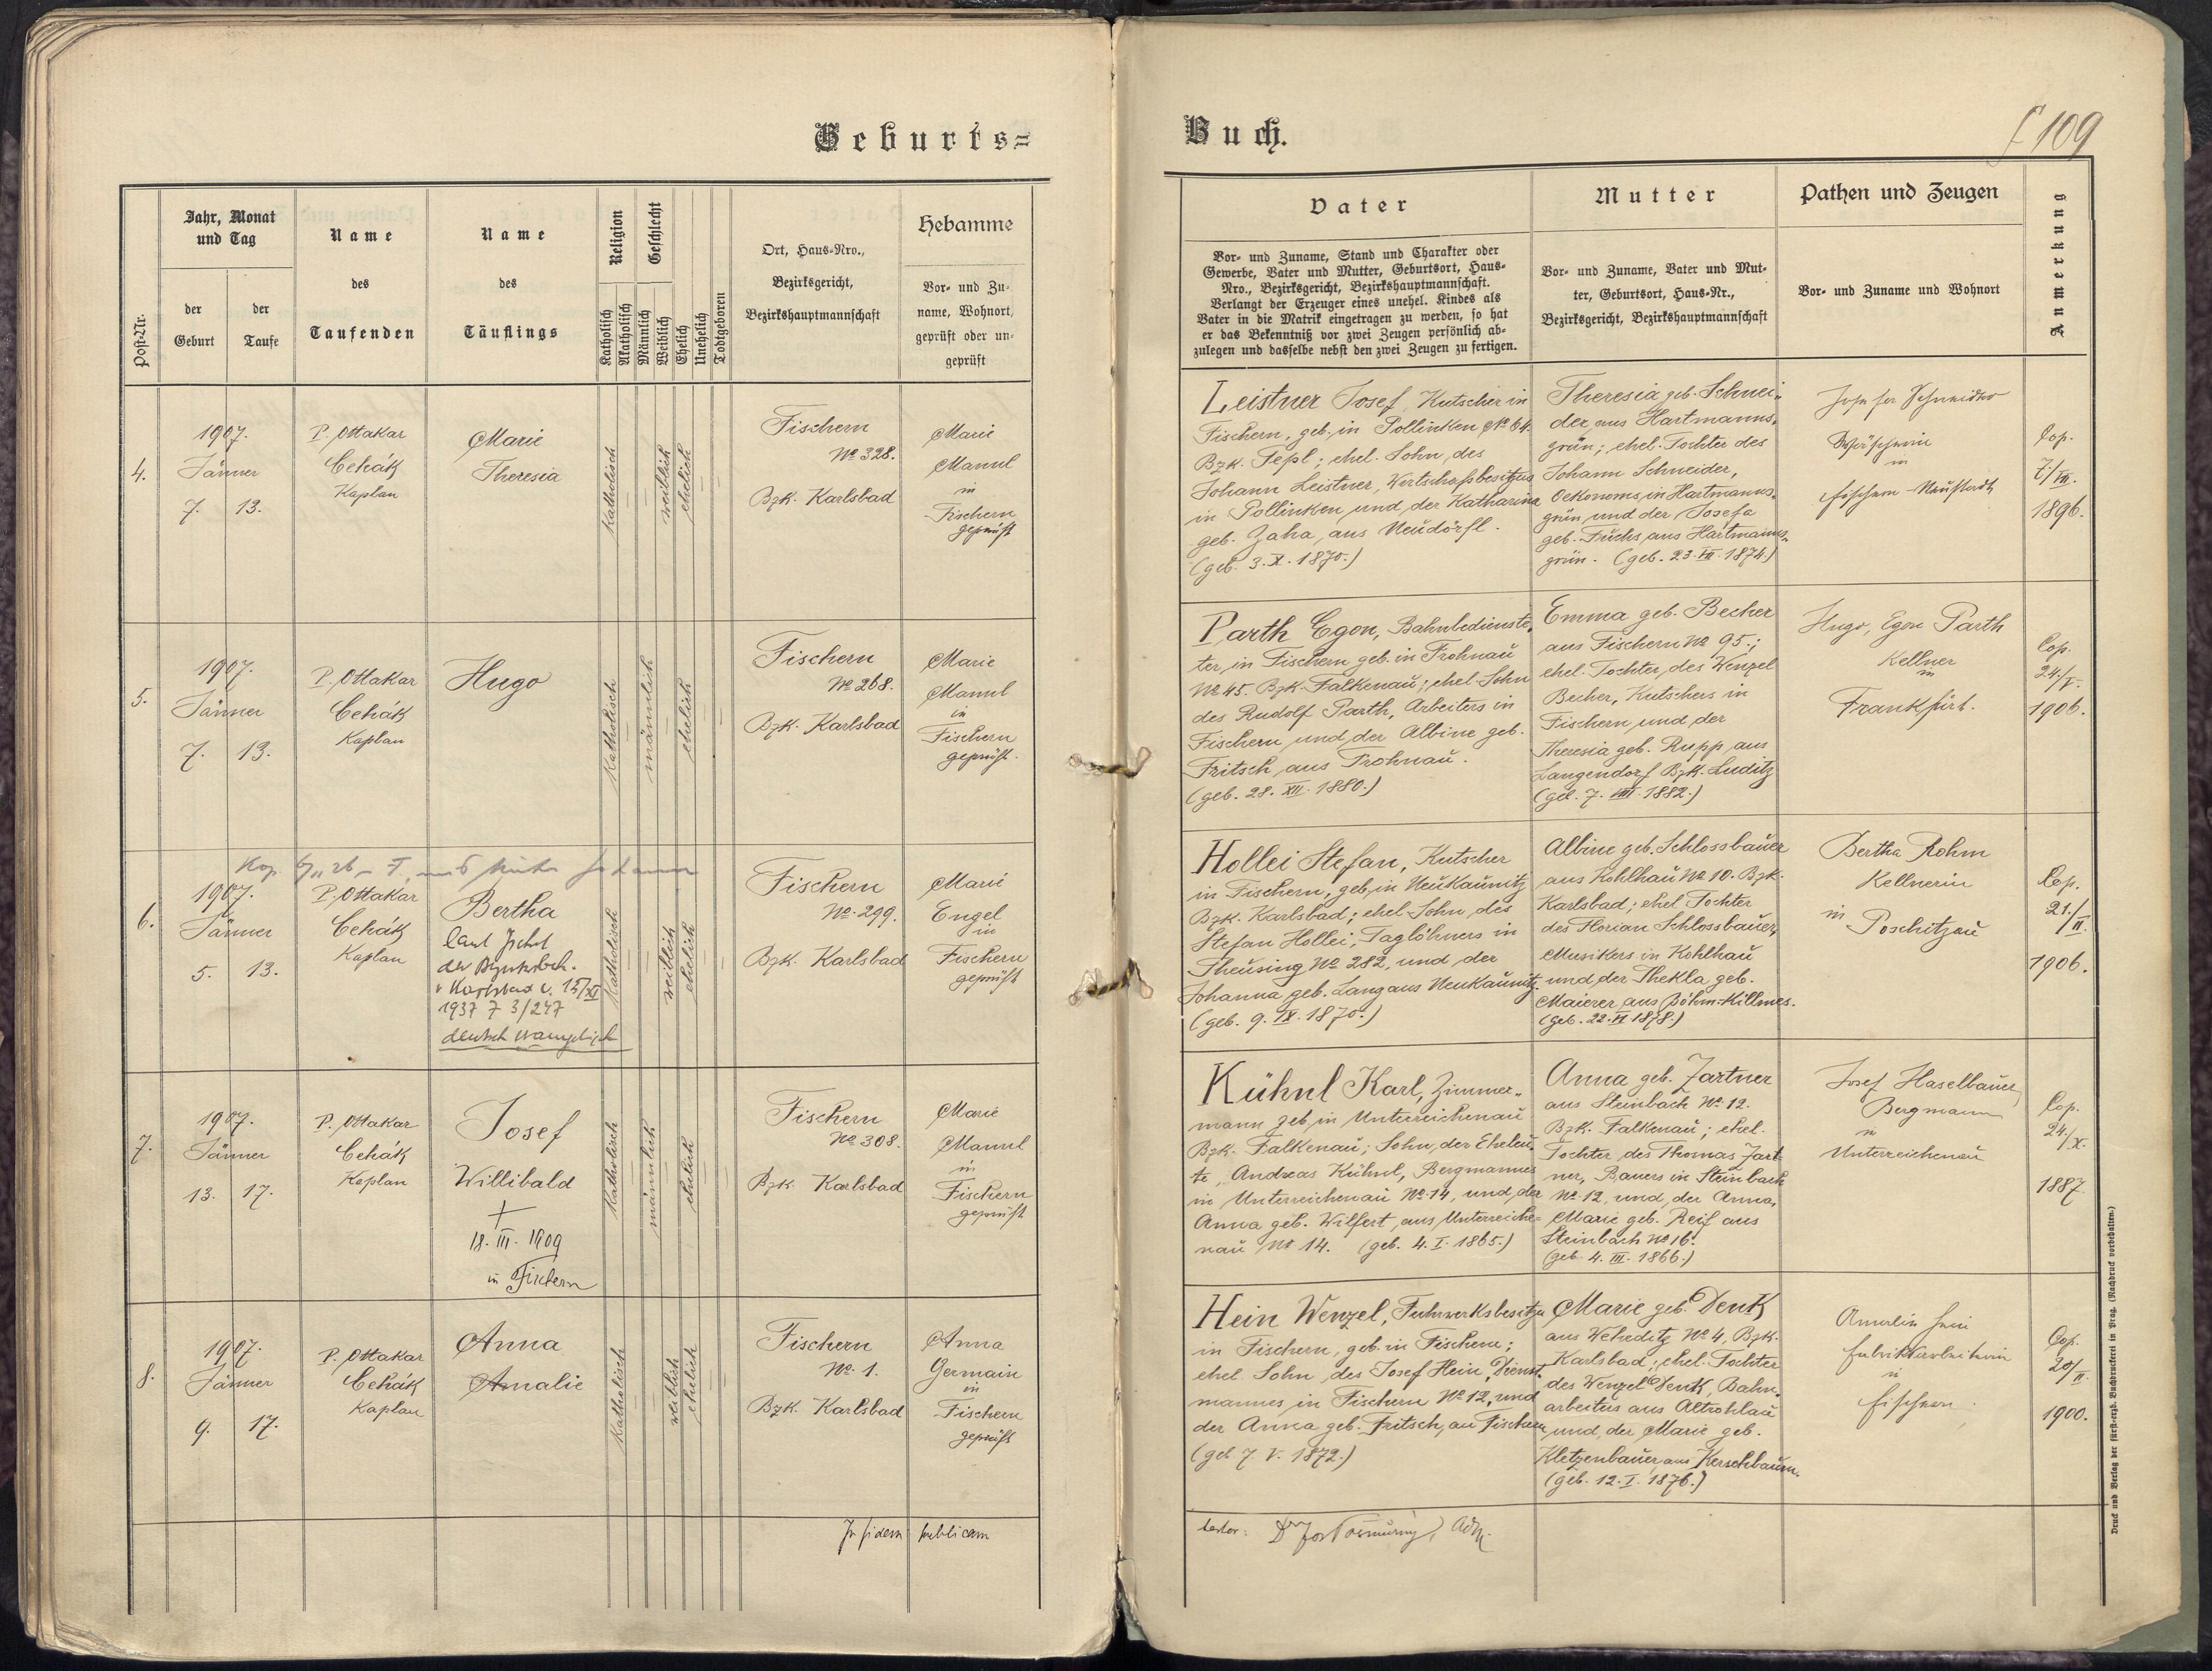 Geburts=
Jahr, Monat
und Tag
der
Geburt
der
Taufe
Post-Nr.
Name
des
Taufenden
Name
des
Täuflings
Religion
Geschlecht
Katholisch
Akatholisch
Männlich
Weiblich
Ehelich
Unehelich
Todtgeboren
Ort, Haus-Nro.,
Bezirksgericht,
Bezirkshauptmannschaft
Hebamme
Vor- und Zu-
name, Wohnort,
geprüft oder un-
geprüft
4.
1907.
Jänner
7. 13.
P. Ottakar
Cehák
Kaplan
Marie
Theresia
Katholisch
weiblich
ehelich
Fischern
No 328.
Bzk. Karlsbad
Marie
Manul
in
Fischern
geprüft
5.
1907.
Jänner
7. 13.
P. Ottakar
Cehák
Kaplan
Hugo
Katholisch
männlich
ehelich
Fischern
No 268.
Bzk. Karlsbad
Marie
Manul
in
Fischern
geprüft.
6.
1907.
Jänner
5. 13.
P. Ottakar
Cehák
Kaplan
Bertha
laut
der
1937 Z 3/247
deutsch evangelisch
Katholisch
weiblich
ehelich
Fischern
No. 299.
Bzk. Karlsbad
Marie
Engel
in
Fischern
geprüft
7.
1907.
Jänner
13. 17.
P. Ottakar
Cehák
Kaplan
Josef
Willibald
+
18. III. 1909
in Fischern
Katholisch
männlich
ehelich
Fischern
No 308.
Bzk. Karlsbad
Marie
Manul
in
Fischern
geprüft
8.
1907.
Jänner
9. 17.
P. Ottakar
Cehák
Kaplan
Anna
Amalie
Katholisch
weiblich
ehelich
Fischern
No. 1.
Bzk. Karlsbad
Anna
Germain
in
Fischern
geprüft
In fidem publicam
Buch.
109
Vater
Vor- und Zuname, Stand und Charakter oder
Gewerbe, Vater und Mutter, Geburtsort, Haus-
Nro., Bezirksgericht, Bezirkshauptmannschaft.
Verlangt der Erzeuger eines unehel. Kindes als
Vater in die Matrik eingetragen zu werden, so hat
er das Bekenntniß vor zwei Zeugen persönlich ab-
zulegen und dasselbe nebst den zwei Zeugen zu fertigen.
Mutter
Vor- und Zuname, Vater und Mut-
ter, Geburtsort, Haus-Nr.,
Bezirksgericht, Bezirkshauptmannschaft
Pathen und Zeugen
Vor- und Zuname und Wohnort
Anmerkung
Leistner Josef, Kutscher in
Fischern, geb. in Pollinken No 64.
Bzk. Tepl; ehel. Sohn des
Johann Leistner, Wirtschaftsbesitzers
in Pollinken und der Katharina
geb. Zaha, aus Neudörfl.
(geb. 3. X. 1870.)
Theresia geb. Schnei-
der, aus Hartmanns-
grün; ehel. Tochter des
Johann Schneider,
Oekonoms, in Hartmanns-
grün und der Josefa
geb. Fuchs, aus Hartmanns-
grün. (geb. 23. VII. 1874.)
Josefa Schneider
Wäscherin
in
Fischern-Neustadt
Cop.
7./VII.
1896.
Parth Egon, Bahnbedienste-
ter in Fischern geb. in Frohnau
No 45. Bzk. Falkenau; ehel. Sohn
des Rudolf Parth, Arbeiters in
Fischern und der Albine geb.
Fritsch, aus Frohnau.
(geb. 28. XII. 1880.)
Emma geb. Becher
aus Fischern No 95.;
ehel. Tochter des Wenzel
Becher, Kutschers in
Fischern und der
Theresia geb. Rupp, aus
Langendorf Bzk. Luditz
(geb. 7. VIII. 1882.)
Hugo, Egon Parth
Kellner
in
Frankfurt.
Cop.
24./V.
1906.
Hollei Stefan, Kutscher
in Fischern, geb. in Neukaunitz
Bzk. Karlsbad; ehel. Sohn des
Stefan Hollei, Taglöhners in
Theusing No 282, und der
Johanna geb. Lang aus Neukaunitz.
(geb. 9. IX. 1870.)
Albine geb. Schlossbauer
aus Kohlhau No 10. Bzk.
Karlsbad; ehel. Tochter
des Florian Schlossbauer,
Musikers in Kohlhau
und der Thekla geb.
Maierer aus Böhm-Killmes.
(geb. 22. VI 1878.)
Bertha Rohm
Kellnerin
in Poschitzau
Cop.
21./II.
1906.
Kühnl Karl, Zimmer-
mann geb. in Unterreichenau
Bzk. Falkenau; Sohn der Eheleu-
te, Andreas Kühnl, Bergmannes
in Unterreichenau No. 14, und der
Anna geb. Wilfert, aus Unterreiche-
nau No 14. (geb. 4. I. 1865.)
Anna geb. Zartner
aus Steinbach No. 12.
Bzk. Falkenau; ehel.
Tochter des Thomas Zart-
ner, Bauers in Steinbach
No. 12, und der Anna,
Marie geb. Reif aus
Steinbach No 16.
(geb. 4. III. 1866.)
Josef Haselbauer
Bergmann
in
Unterreichenau
Cop.
24./X.
1887.
Hein Wenzel, Fuhrwerksbesitzer
in Fischern, geb. in Fischern;
ehel. Sohn des Josef Hein, Dienst-
mannes, in Fischern No 12, und
der Anna geb. Fritsch, aus Fischern
(geb. 7. V. 1872.)
Marie geb. Denk
aus Weheditz No 4, Bzk.
Karlsbad; ehel. Tochter
des Wenzel Denk, Bahn-
arbeiters aus Altrohlau
und der Marie geb.
Kletzenbauer, aus Kerschbaum.
(geb. 12. I. 1876.)
Amalie Hein
Fabriksarbeiterin
in
Fischern
Cop.
20/II.
1900.
Druck und Verlag der fürst-erzb. Buchdruckerei in Prag. (Nachdruck vorbehalten.)